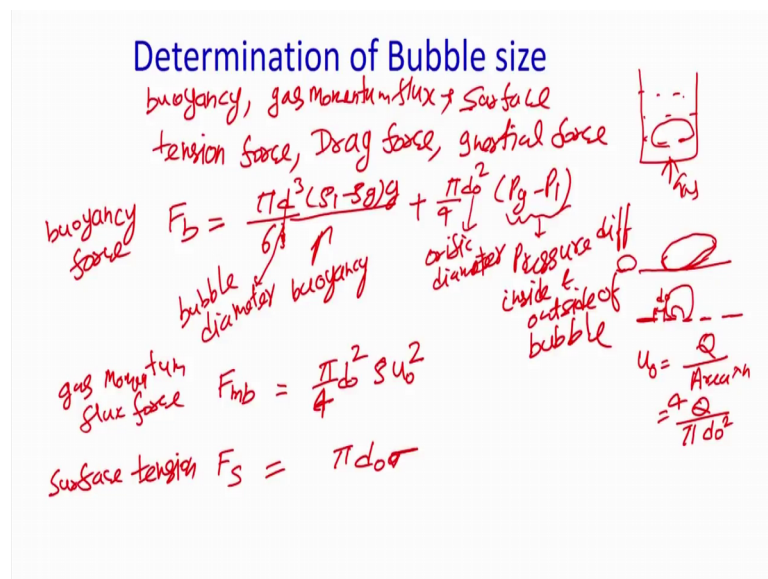 Determination of Bubble size
buoyancy, gas Momentum flux, Surface
tension force, Drag force, Inertial force
Gas
buoyancy force F_b = πd³(ρ_l-ρ_g)g/6 + π/4 d_o² (P_g-P_l)
bubble diameter
buoyancy
orific diameter
Pressure diff
inside &
outside of
bubble
d_o
gas Momentum flux force F_mb = π/4 d_o² ρ u_o²
u_o = Q/Area×n
= 4Q/πd_o²
Surface tension F_s = π d_o σ